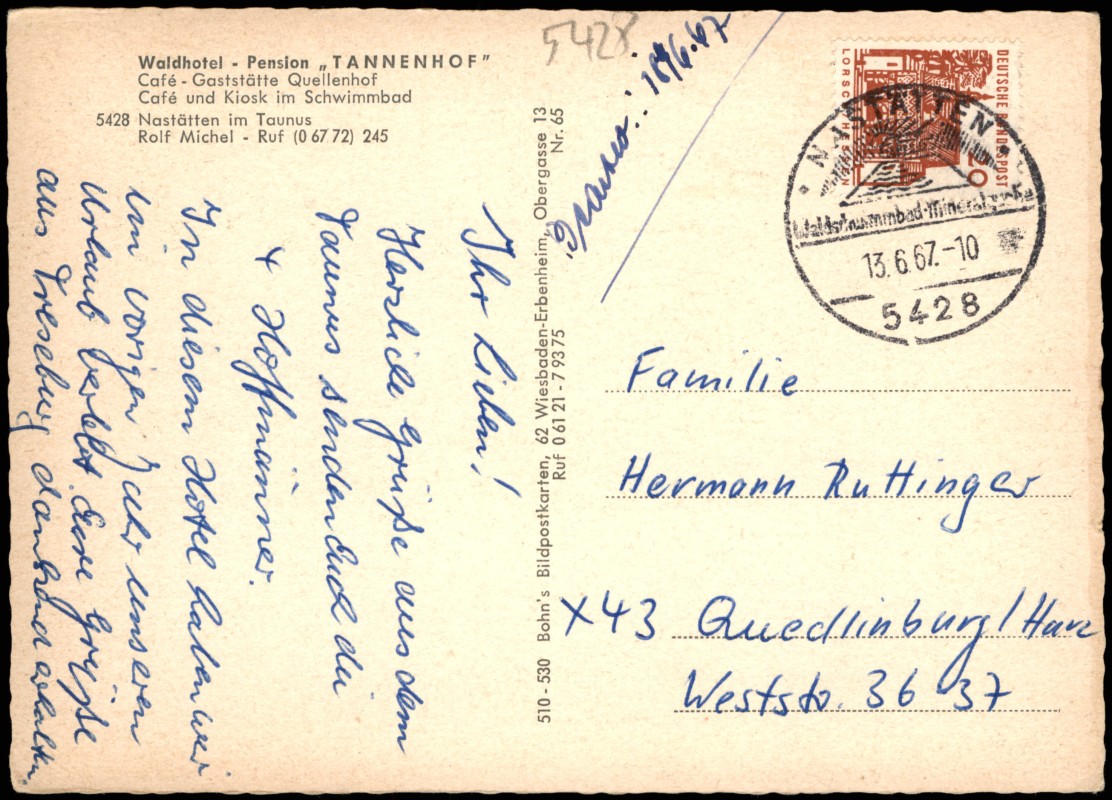 Waldhotel - Pension „TANNENHOF"
Café - Gaststätte Quellenhof
Café und Kiosk im Schwimmbad
5428 Nastätten im Taunus
Rolf Michel - Ruf (0 67 72) 245
5428
18/6.67
DEUTSCHE BUNDESPOST
20
NASTÄTTEN
13.6.67.-10
5428
Ihr Lieben!
Herzliche Grüße aus dem
Taunus senden Euch die
4 Hoffmänner.
In diesem Hotel haben wir
im vorigen Jahr unseren
Urlaub verlebt. Eure Grüße
aus Treseburg dankend erhalten
510 - 530 Bohn's Bildpostkarten, 62 Wiesbaden-Erbenheim, Obergasse 13
Ruf 0 61 21 - 7 93 75
Nr. 65
Familie
Hermann Ruttinger
X43 Quedlinburg/Harz
Weststr. 36 37